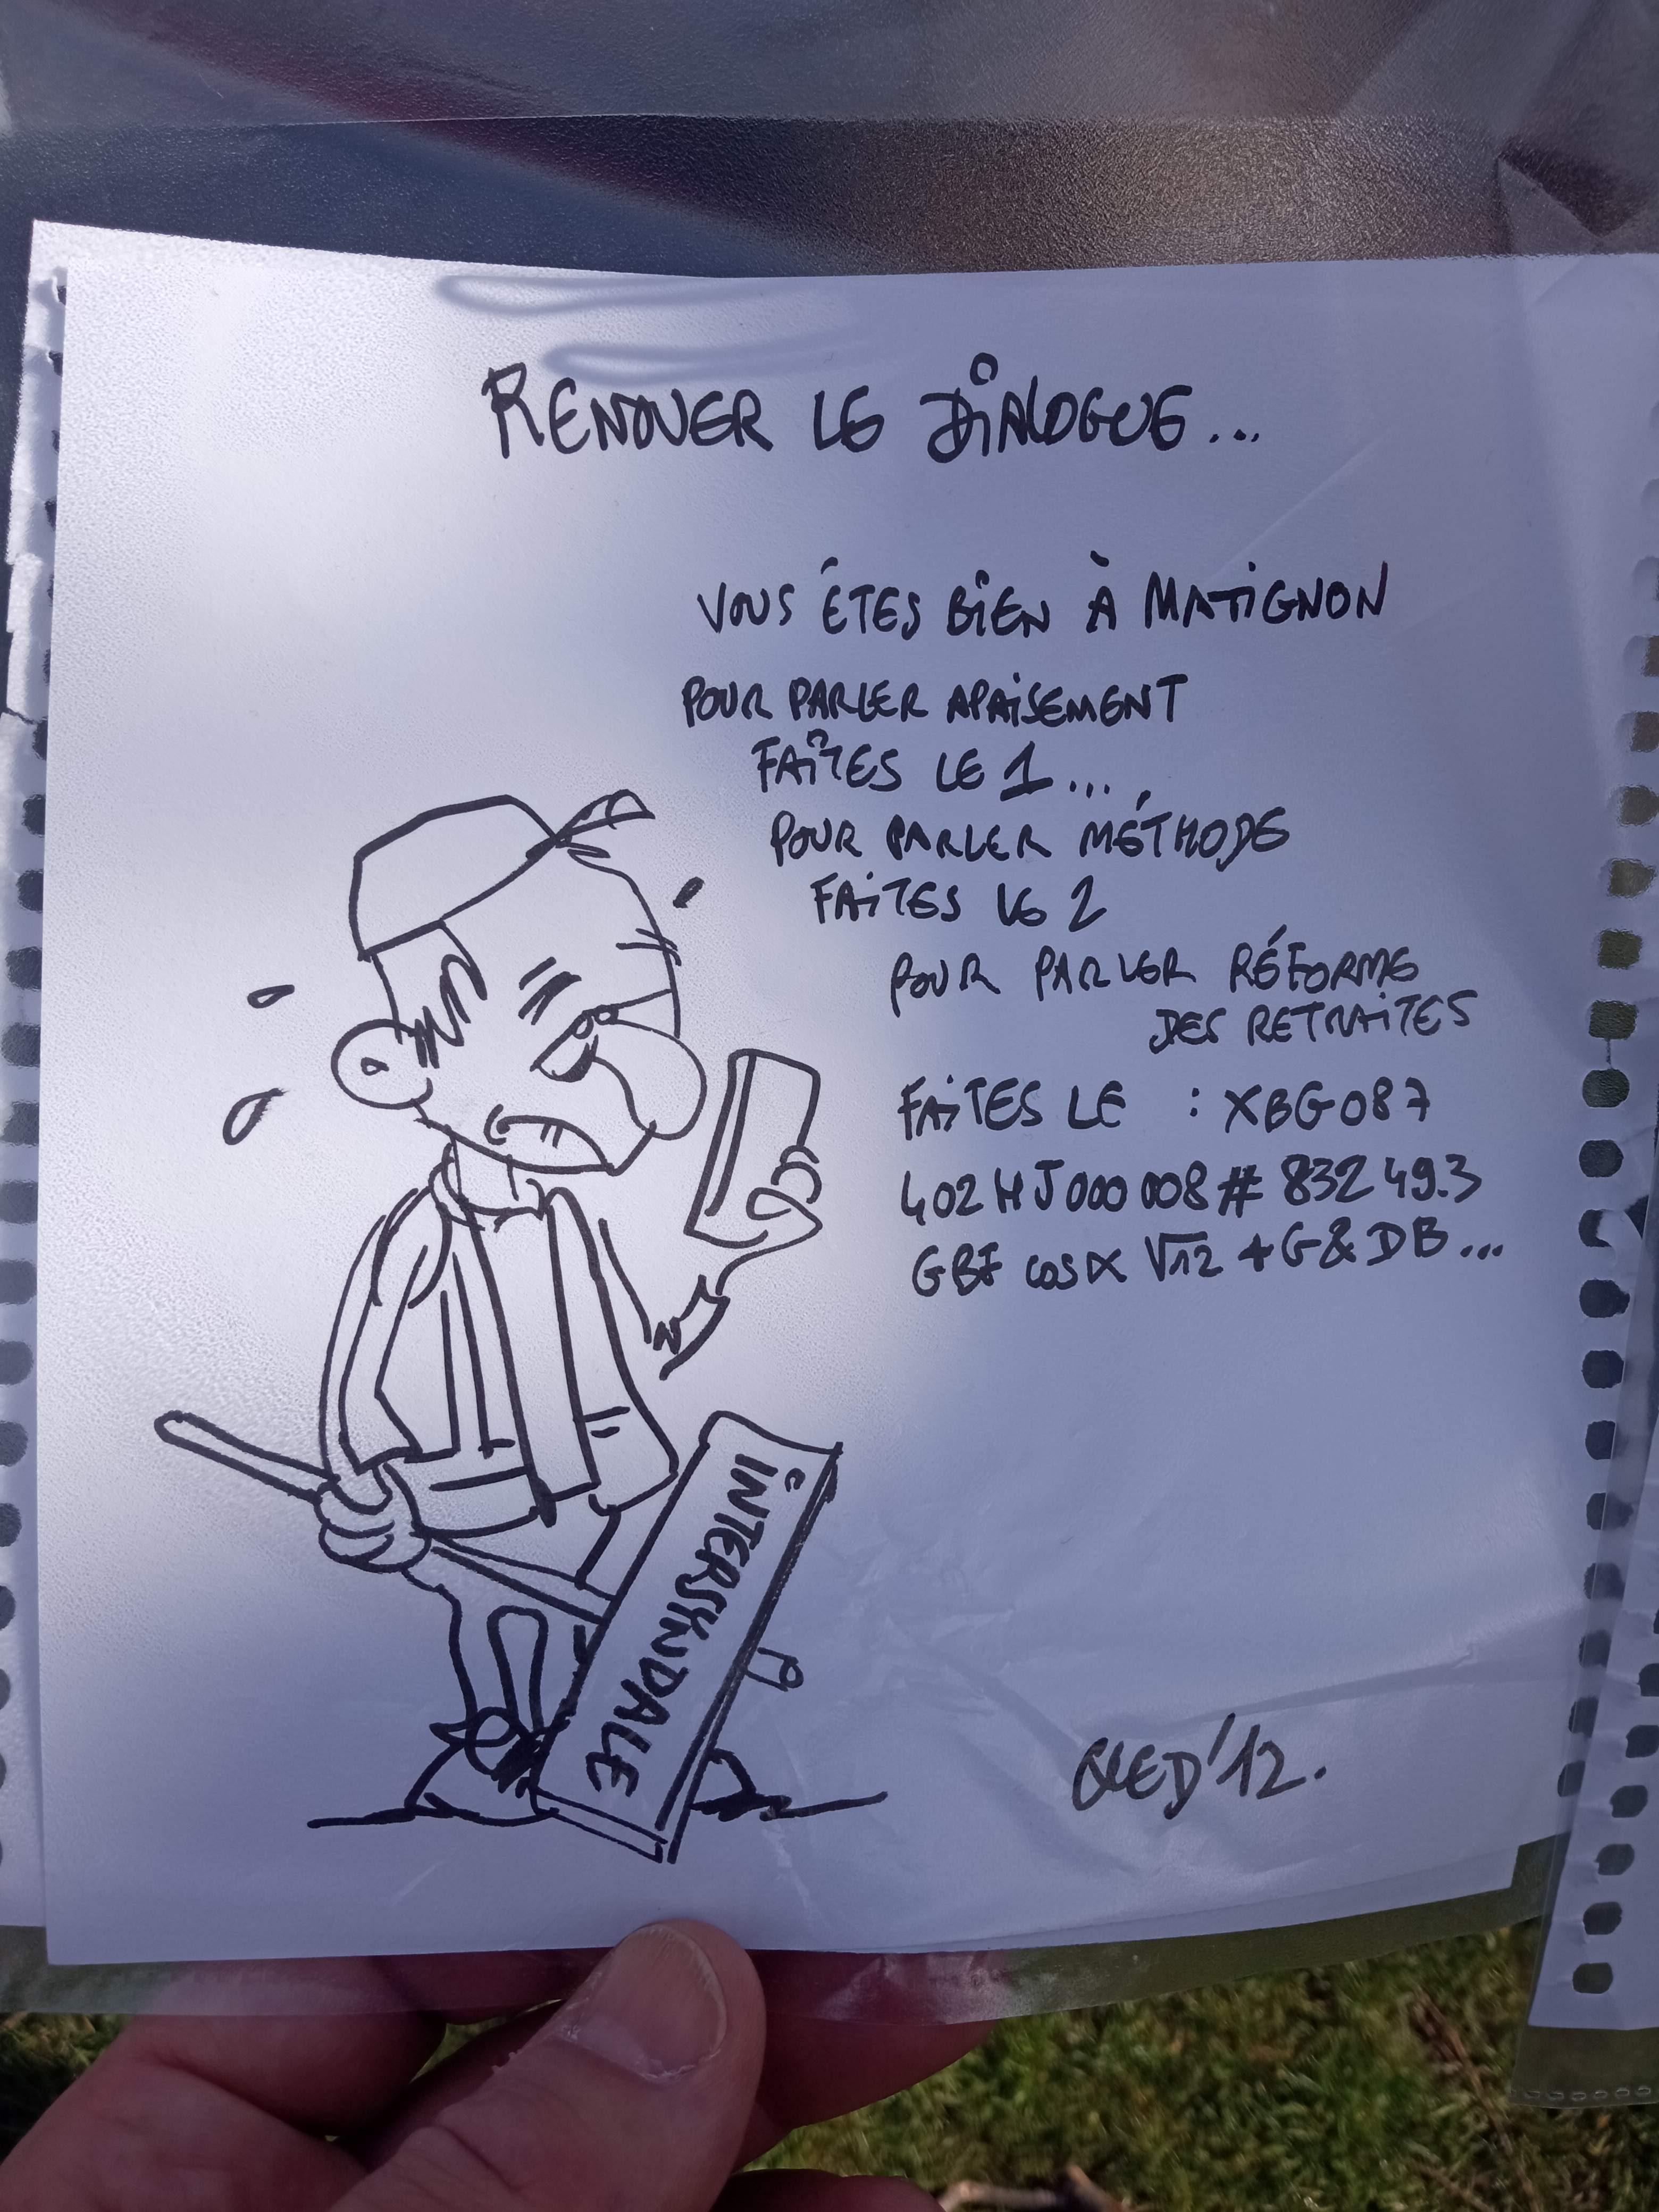 RENOUER LE DIALOGUE...
VOUS ÊTES BIEN À MATIGNON
POUR PARLER APAISEMENT
FAÎTES LE 1...
POUR PARLER MÉTHODE
FAITES LE 2
POUR PARLER RÉFORME
DES RETRAITES
FAITES LE : XBG087
402HJ000008# 83249.3
GBF cos∝ √12 + G&DB...
INTERSYNDALE